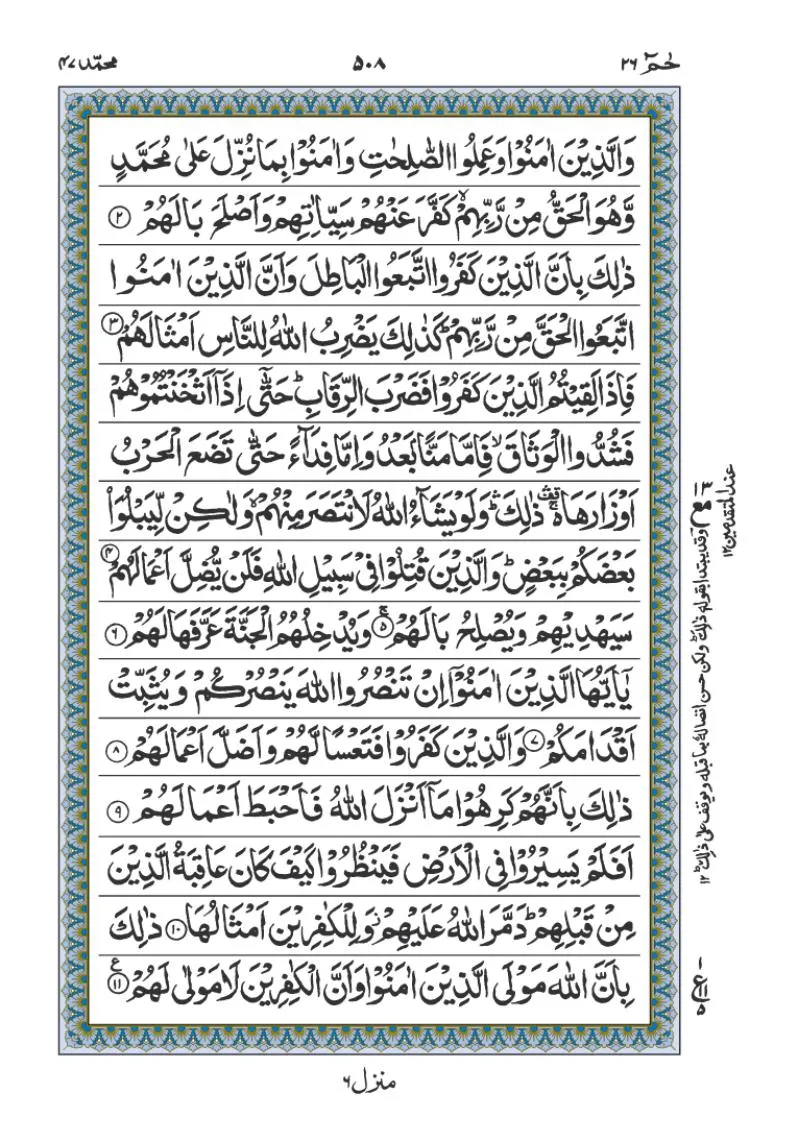 حٰمٓ ٢٦
٥٠٨
محمّد ٤٧
وَالَّذِيْنَ اٰمَنُوْا وَعَمِلُوا الصّٰلِحٰتِ وَاٰمَنُوْا بِمَا نُزِّلَ عَلٰى مُحَمَّدٍ
وَّهُوَ الْحَقُّ مِنْ رَّبِّهِمْ ۙ كَفَّرَ عَنْهُمْ سَيِّاٰتِهِمْ وَاَصْلَحَ بَالَهُمْ ﴿٢﴾
ذٰلِكَ بِاَنَّ الَّذِيْنَ كَفَرُوا اتَّبَعُوا الْبَاطِلَ وَاَنَّ الَّذِيْنَ اٰمَنُوا
اتَّبَعُوا الْحَقَّ مِنْ رَّبِّهِمْ ؕ كَذٰلِكَ يَضْرِبُ اللّٰهُ لِلنَّاسِ اَمْثَالَهُمْ ﴿٣﴾
فَاِذَا لَقِيْتُمُ الَّذِيْنَ كَفَرُوْا فَضَرْبَ الرِّقَابِ ؕ حَتّٰۤى اِذَاۤ اَثْخَنْتُمُوْهُمْ
فَشُدُّوا الْوَثَاقَ ۙ فَاِمَّا مَنًّۢا بَعْدُ وَاِمَّا فِدَآءً حَتّٰى تَضَعَ الْحَرْبُ
اَوْزَارَهَا ۛ۬ۚ ذٰلِكَ ۛؕ وَلَوْ يَشَآءُ اللّٰهُ لَانْتَصَرَ مِنْهُمْ ۙ وَلٰكِنْ لِّيَبْلُوَا۟
بَعْضَكُمْ بِبَعْضٍ ؕ وَالَّذِيْنَ قُتِلُوْا فِيْ سَبِيْلِ اللّٰهِ فَلَنْ يُّضِلَّ اَعْمَالَهُمْ ﴿٤﴾
سَيَهْدِيْهِمْ وَيُصْلِحُ بَالَهُمْ ﴿٥﴾ۚ وَيُدْخِلُهُمُ الْجَنَّةَ عَرَّفَهَا لَهُمْ ﴿٦﴾
يٰۤاَيُّهَا الَّذِيْنَ اٰمَنُوْۤا اِنْ تَنْصُرُوا اللّٰهَ يَنْصُرْكُمْ وَيُثَبِّتْ
اَقْدَامَكُمْ ﴿٧﴾ وَالَّذِيْنَ كَفَرُوْا فَتَعْسًا لَّهُمْ وَاَضَلَّ اَعْمَالَهُمْ ﴿٨﴾
ذٰلِكَ بِاَنَّهُمْ كَرِهُوْا مَاۤ اَنْزَلَ اللّٰهُ فَاَحْبَطَ اَعْمَالَهُمْ ﴿٩﴾
اَفَلَمْ يَسِيْرُوْا فِي الْاَرْضِ فَيَنْظُرُوْا كَيْفَ كَانَ عَاقِبَةُ الَّذِيْنَ
مِنْ قَبْلِهِمْ ؕ دَمَّرَ اللّٰهُ عَلَيْهِمْ ؗ وَلِلْكٰفِرِيْنَ اَمْثَالُهَا ﴿١٠﴾ ذٰلِكَ
بِاَنَّ اللّٰهَ مَوْلَى الَّذِيْنَ اٰمَنُوْا وَاَنَّ الْكٰفِرِيْنَ لَا مَوْلٰى لَهُمْ ﴿١١﴾ ع
وقد يبتدا بقوله ذلك ولكن حسن اتصاله بما قبله ويوقف على ذلك ١٢
عند المتقدمين ١٢
منزل ٦